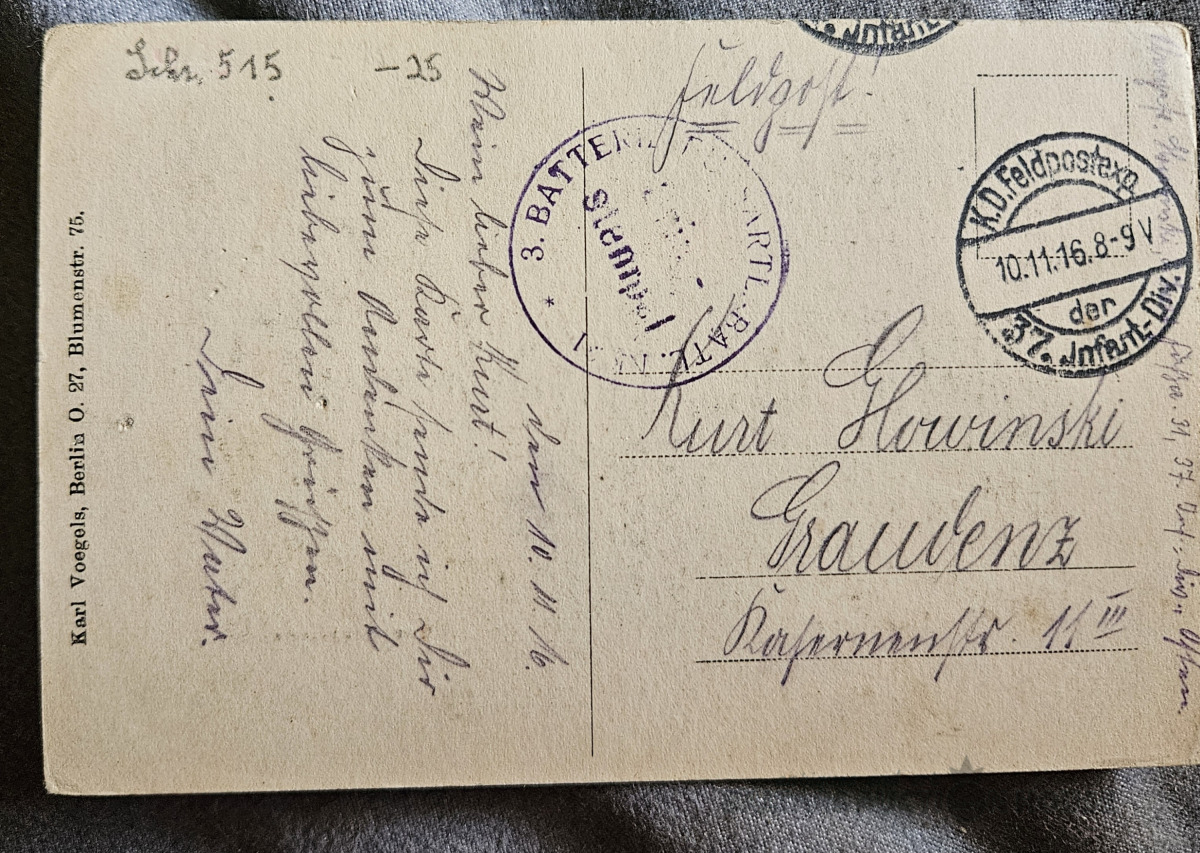 Schr. 515 -25
Feldpost!
. Infant.
K.D. Feldpostexp.
10.11.16. 8-9 V
der
37. Infant.-Div.
3. BATTERIE ARTL.-BATL.
*
Kurt Glowinski
Graudenz
Kasernenstr. 11 III
den 10. 11. 16.
Mein lieber Kurt!
Diese Karte sende ich Dir
zum Andenken mit
liebevollen Grüßen.
Dein Vater.
Karl Voegels, Berlin O. 27, Blumenstr. 75.
37. Inf.-Div.